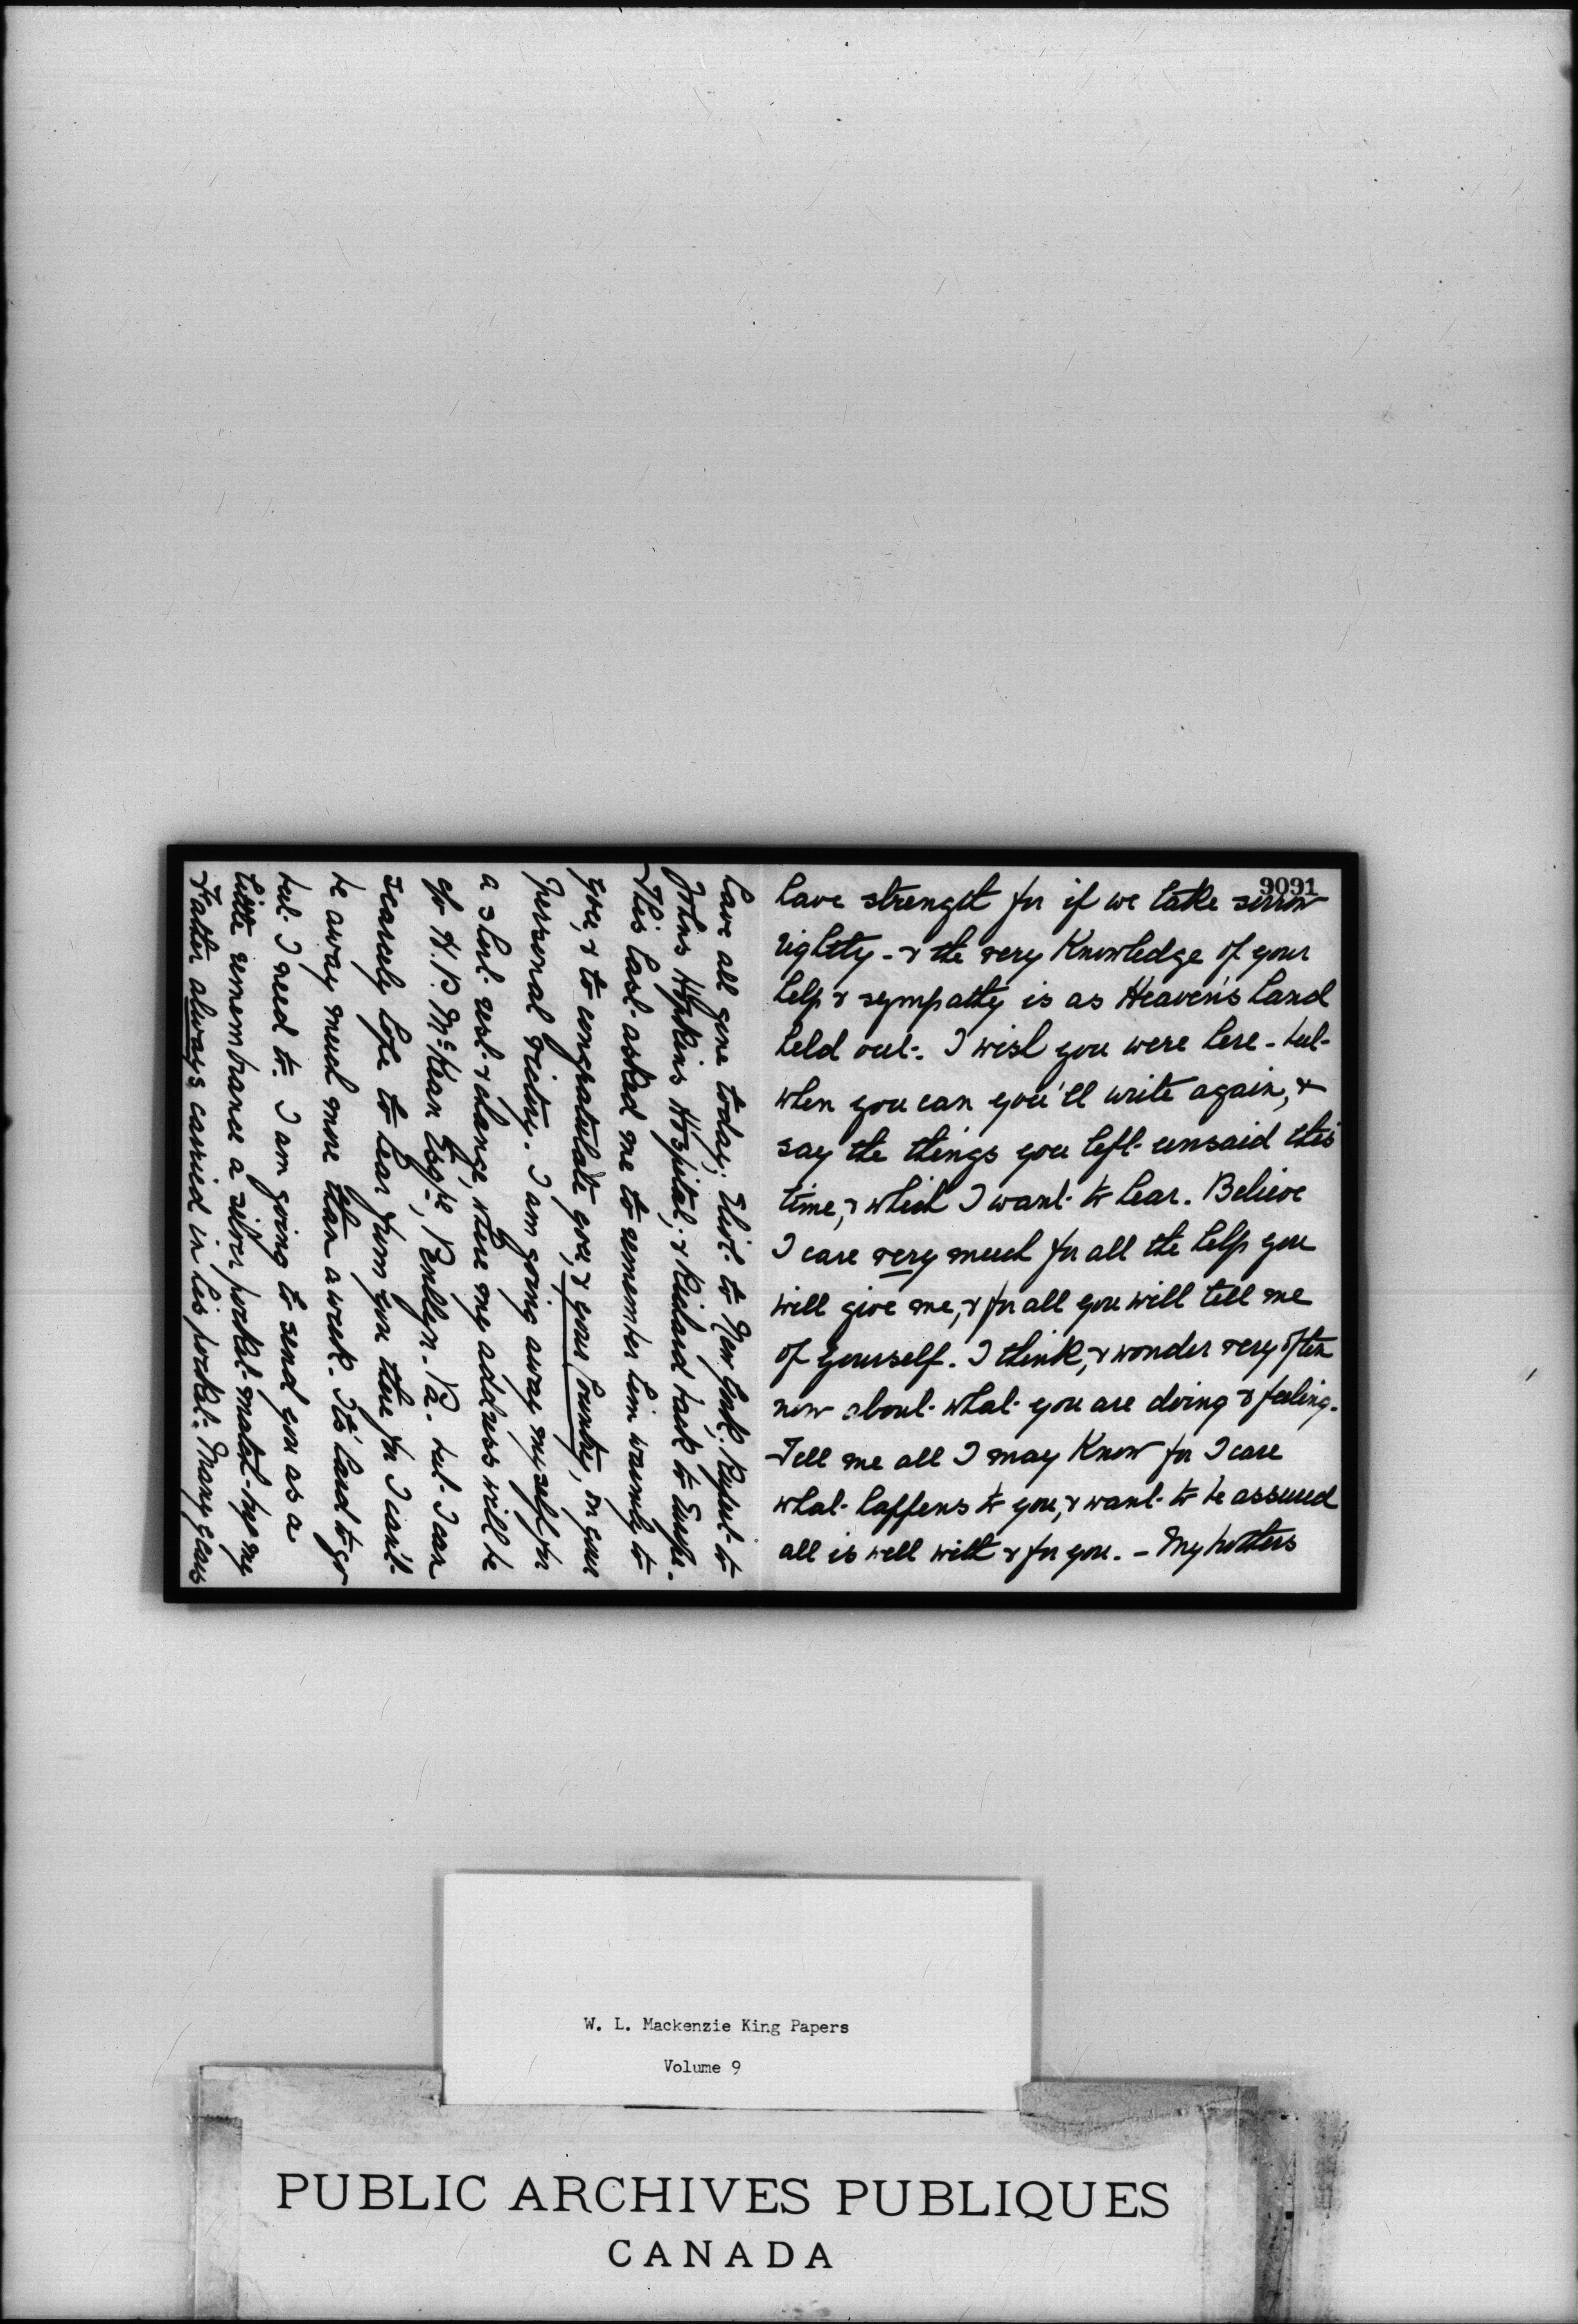 9091
have strength for if we take sorrow
rightly - & the very knowledge of your
help & sympathy is as Heaven's hand
held out. I wish you were here - but
when you can you'll write again, &
say the things you left unsaid this
time, & which I want to hear. Believe
I care very much for all the help you
will give me, & for all you will tell me
of yourself. I think, & wonder very often
now about what you are doing & feeling.
Tell me all I may know for I care
what happens to you, & want to be assured
all is well with & for you. - My brothers
have all gone today; Eliot to New York; Rupert to
Johns Hopkins Hospital; & Richard back to Europe.
This last asked me to remember him warmly to
you, & to congratulate you, & your Country, on your
personal victory. I am going away myself for
a short rest & change, where my address will be
c/o H. P. McKean Esqre, Penllyn. Pa. but I can
scarcely hope to hear from you there for I can't
be away much more than a week. It's hard to go
but I need to. I am going to send you as a
little remembrance a silver pocket match-box my
Father always carried in his pocket. Many years
W. L. Mackenzie King Papers
Volume 9
PUBLIC ARCHIVES PUBLIQUES
CANADA